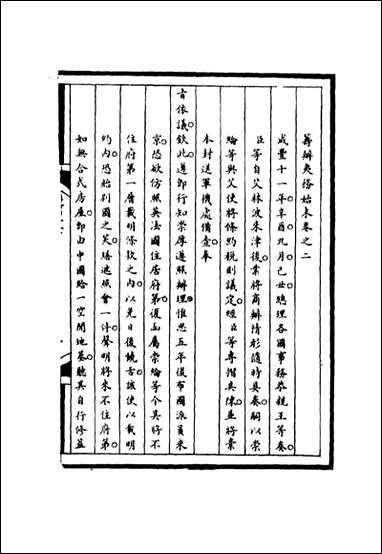 籌辦夷務始末卷之二
咸豐十一年辛酉九月己丑總理各國事務恭親王等奏
臣等自艾林波來津後業將商辦情形隨時具奏嗣以崇
綸等與艾使將條約稅則議定經臣等專摺具陳並將業
本封送軍機處備查奉
旨依議欽此遵即行知崇厚遵照辦理惟思五年後布國派員來
京恐欲仿照英法國住居府第復函屬崇綸等令其將不
住府第一層載明條款之內以免日後饒舌該使以載明
約內恐貽別國之笑勝遞照會一件聲明將來不住府第
如無合式房屋即由中國給一空閒地基聽其自行修蓋